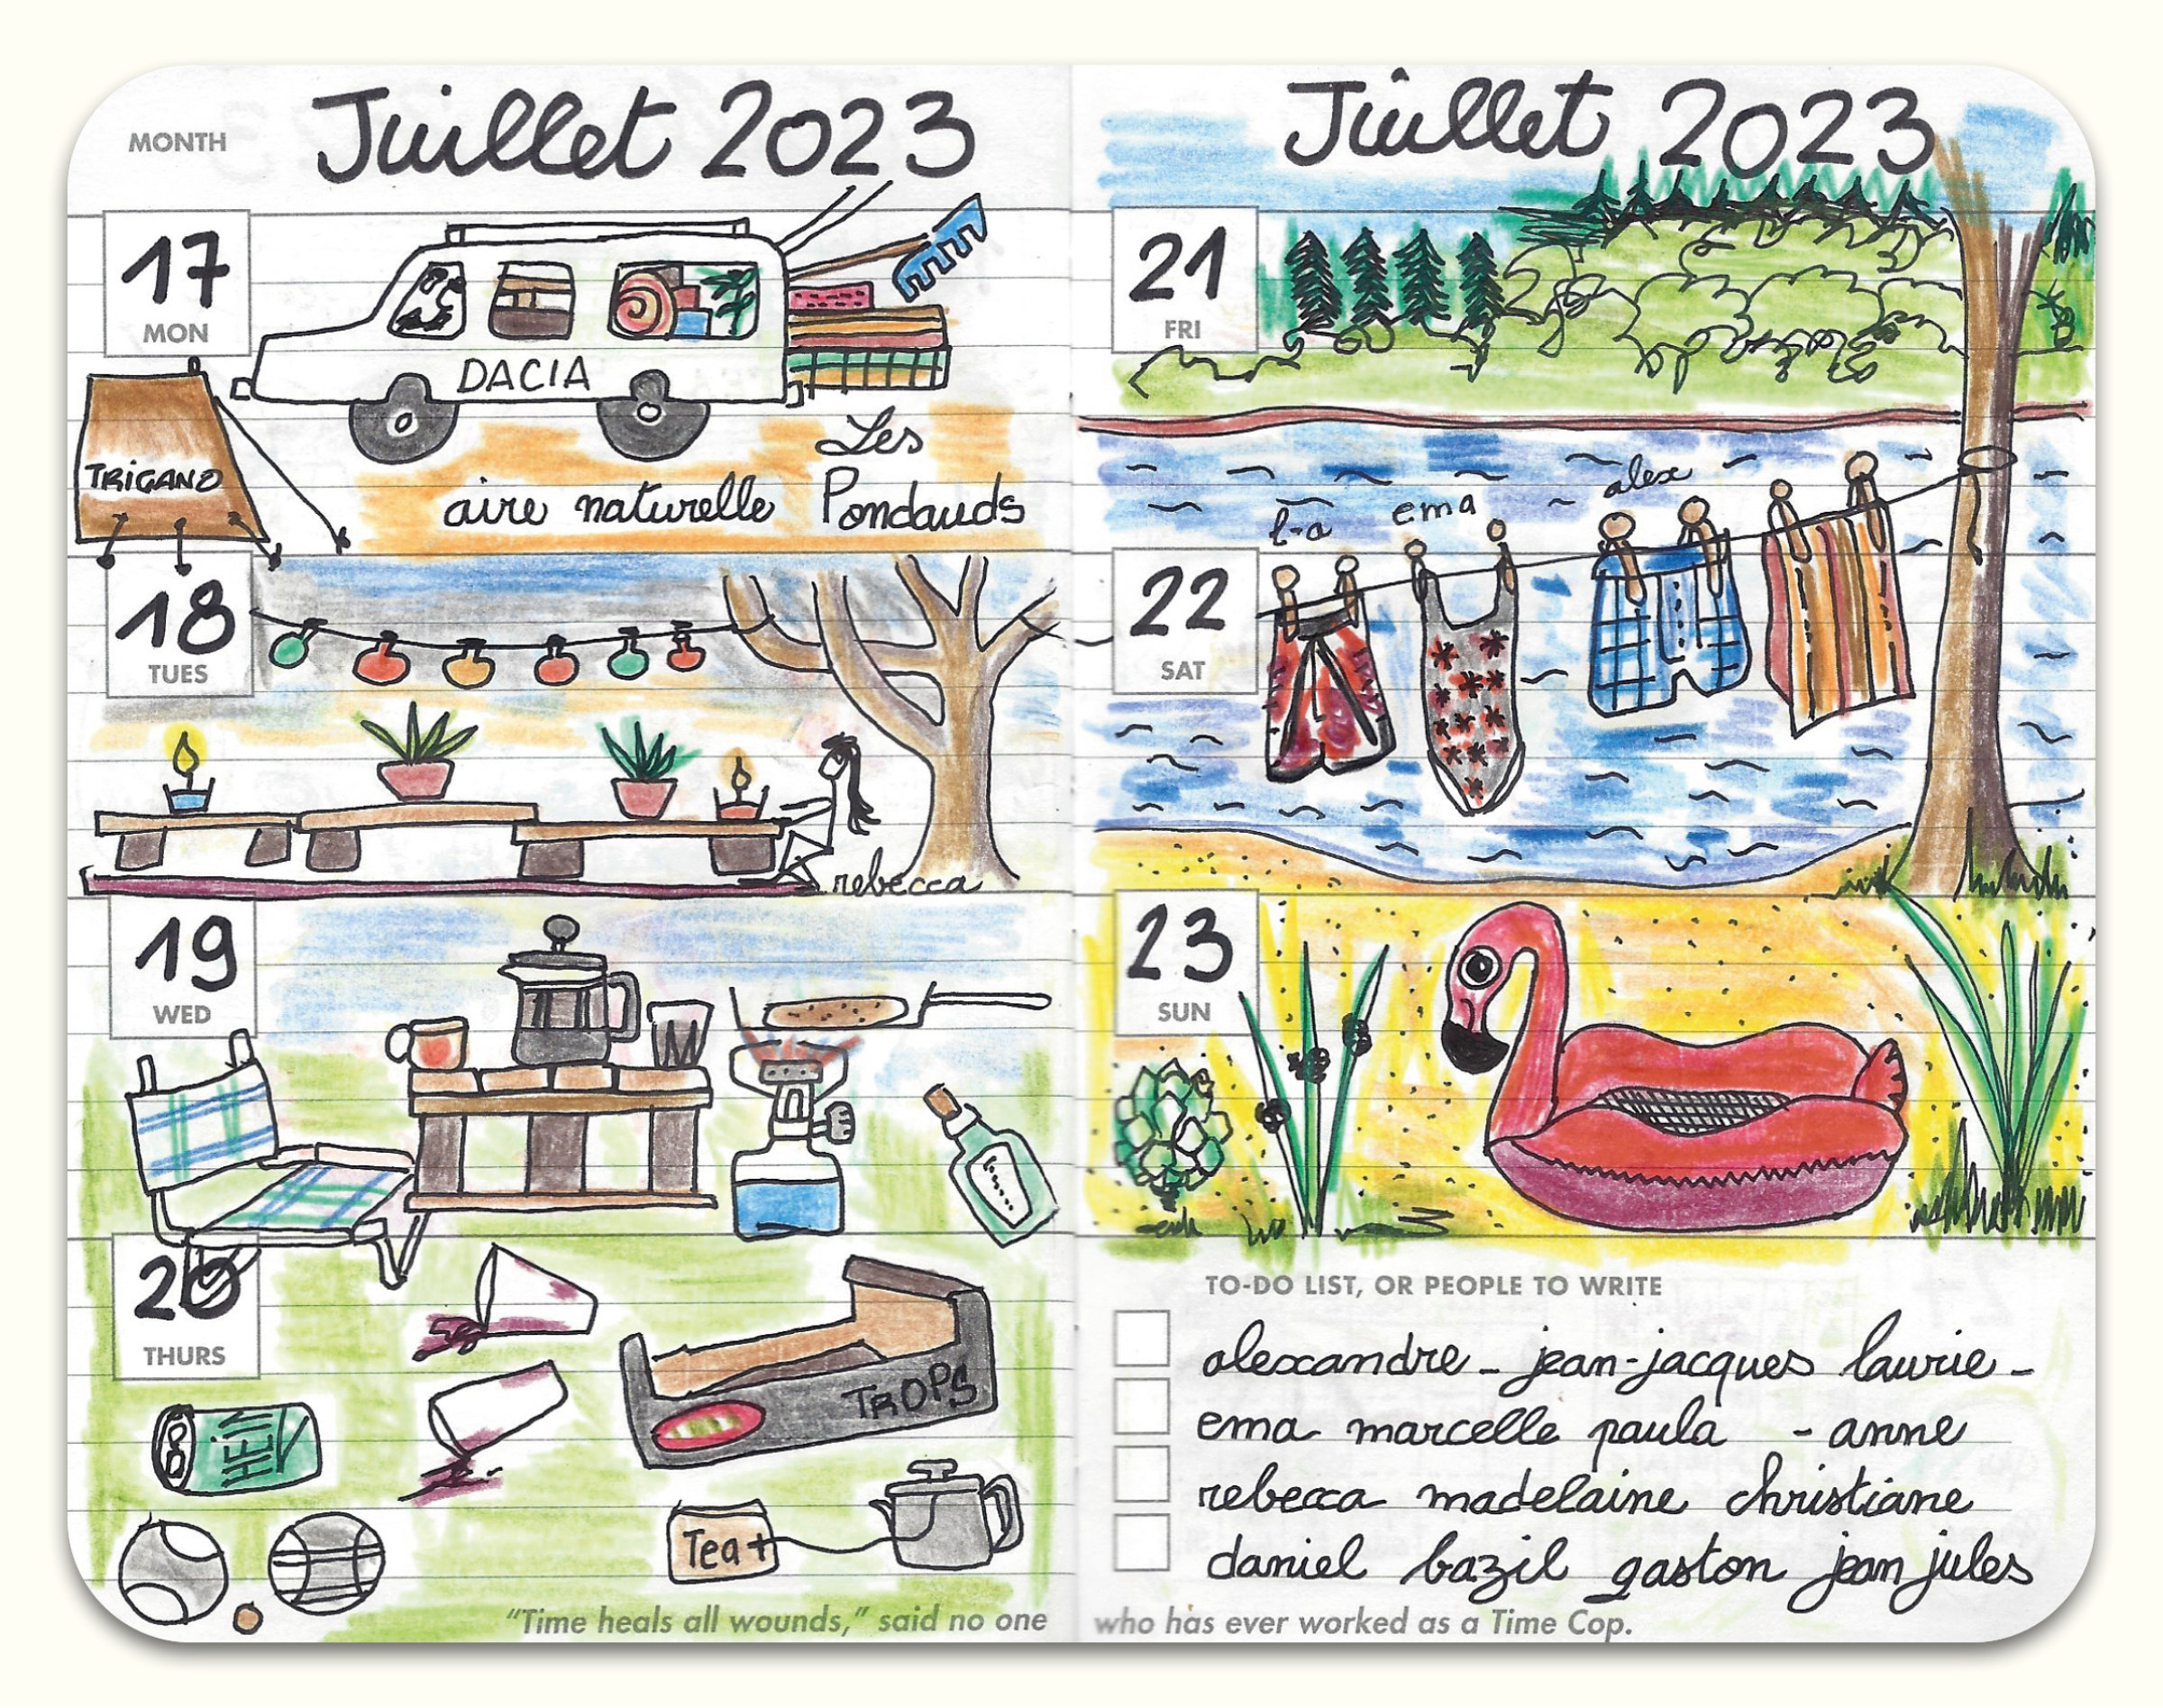 MONTH
Juillet 2023
17
MON
DACIA
TRIGANO
Les
aire naturelle Pondauds
18
TUES
rebecca
19
WED
20
THURS
TROPS
Tea+
"Time heals all wounds," said no one
Juillet 2023
21
FRI
l-a ema alex
22
SAT
23
SUN
TO-DO LIST, OR PEOPLE TO WRITE
alexandre - jean-jacques laurie -
ema marcelle paula - anne
rebecca madelaine christiane
daniel bazil gaston jean jules
who has ever worked as a Time Cop.